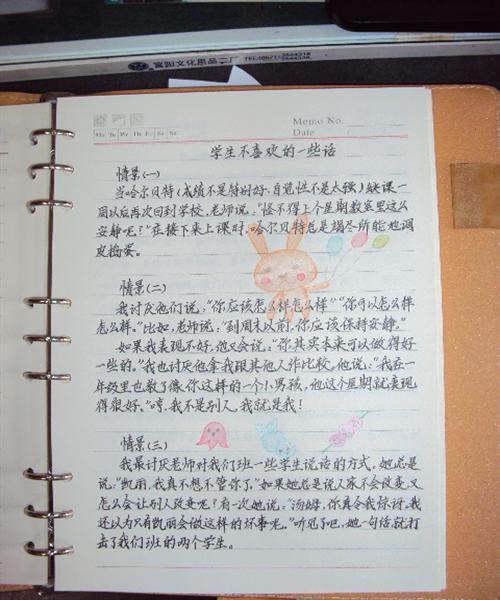 富阳文化用品二厂
Memo No.
Mo Tu We Th Fr Sa Su
Date
学生不喜欢的一些话
情景(一)
当哈尔贝特(成绩不是特别好,自觉性不是太强)缺课一
周以后再次回到学校,老师说:“怪不得上个星期教室里这么
安静呢?”在接下来上课时,哈尔贝特总是竭尽所能地调
皮捣蛋。
情景(二)
我讨厌他们说:“你应该怎么样怎么样”“你可以怎么样
怎么样。”比如,老师说:“到周末以前,你应该保持安静。”
如果我表现不好,他又会说:“你其实本来可以做得好
一些的。”我也讨厌他拿我跟其他人作比较。他说:“我在一
年级里也教了像你这样的一个小男孩,他这个星期就表现
得很好。”哼,我不是别人,我就是我!
情景(三)
我最讨厌老师对我们班一些学生说话的方式。她总是
说:“凯丽,我真不想不管你了。”如果她总是说人家不会改变,又
怎么会让别人改变呢?有一次她说:“汤姆,你真令我惊讶,我
还以为只有凯丽会做这样的坏事呢。”听见了吧,她一句话就打
击了我们班的两个学生。